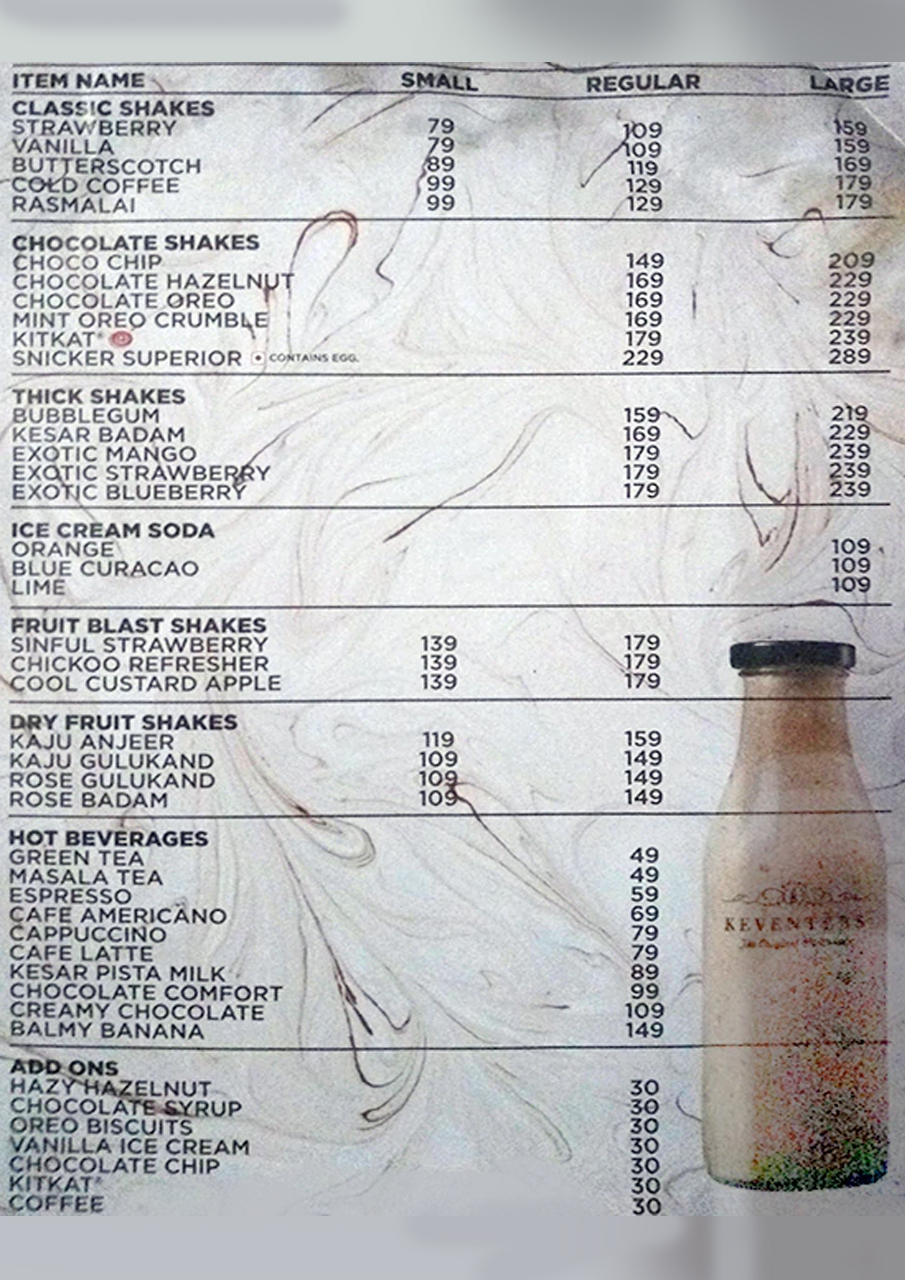 ITEM NAME SMALL REGULAR LARGE
CLASSIC SHAKES
STRAWBERRY 79 109 159
VANILLA 79 109 159
BUTTERSCOTCH 89 119 169
COLD COFFEE 99 129 179
RASMALAI 99 129 179
CHOCOLATE SHAKES
CHOCO CHIP 149 209
CHOCOLATE HAZELNUT 169 229
CHOCOLATE OREO 169 229
MINT OREO CRUMBLE 169 229
KITKAT® 179 239
SNICKER SUPERIOR CONTAINS EGG. 229 289
THICK SHAKES
BUBBLEGUM 159 219
KESAR BADAM 169 229
EXOTIC MANGO 179 239
EXOTIC STRAWBERRY 179 239
EXOTIC BLUEBERRY 179 239
ICE CREAM SODA
ORANGE 109
BLUE CURACAO 109
LIME 109
FRUIT BLAST SHAKES
SINFUL STRAWBERRY 139 179
CHICKOO REFRESHER 139 179
COOL CUSTARD APPLE 139 179
DRY FRUIT SHAKES
KAJU ANJEER 119 159
KAJU GULUKAND 109 149
ROSE GULUKAND 109 149
ROSE BADAM 109 149
HOT BEVERAGES
GREEN TEA 49
MASALA TEA 49
ESPRESSO 59
CAFE AMERICANO 69
CAPPUCCINO 79
CAFE LATTE 79
KESAR PISTA MILK 89
CHOCOLATE COMFORT 99
CREAMY CHOCOLATE 109
BALMY BANANA 149
KEVENTERS
ADD ONS
HAZY HAZELNUT 30
CHOCOLATE SYRUP 30
OREO BISCUITS 30
VANILLA ICE CREAM 30
CHOCOLATE CHIP 30
KITKAT® 30
COFFEE 30